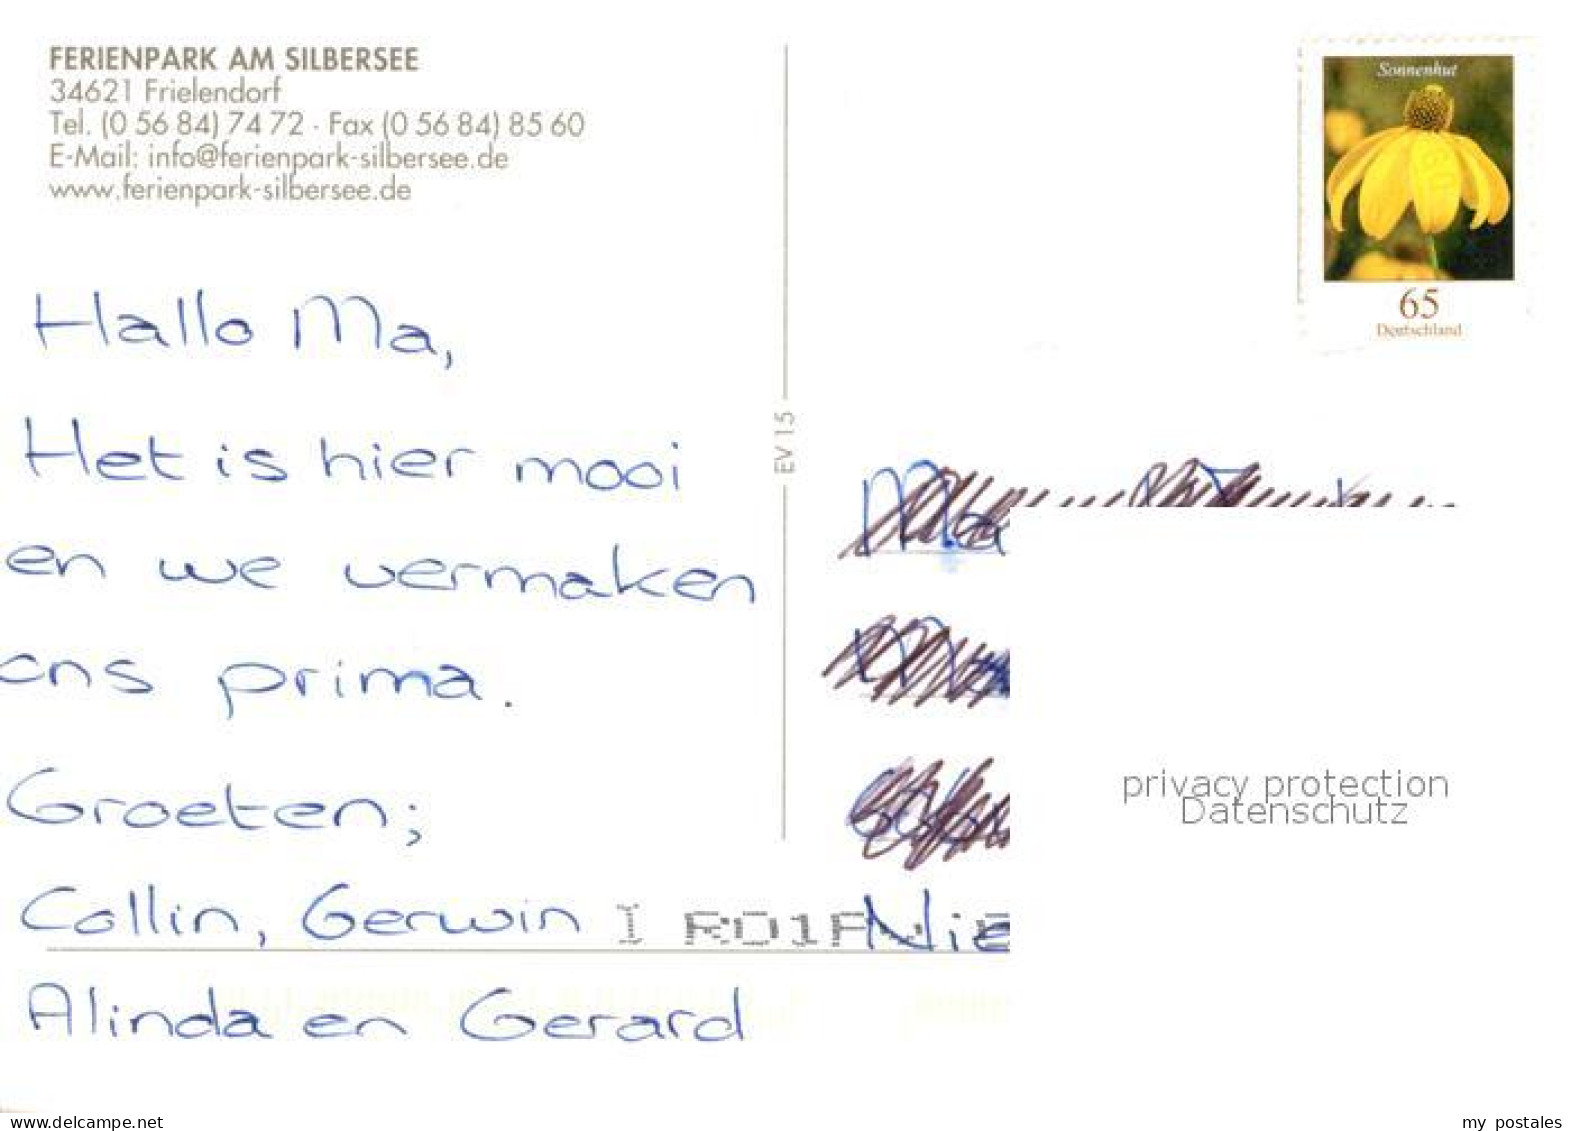 FERIENPARK AM SILBERSEE
34621 Frielendorf
Tel. (0 56 84) 74 72 · Fax (0 56 84) 85 60
E-Mail: info@ferienpark-silbersee.de
www.ferienpark-silbersee.de
Hallo Ma,
Het is hier mooi
en we vermaken
ons prima.
Groeten;
Collin, Gerwin
Alinda en Gerard
EV 15
Sonnenhut
65
Deutschland
privacy protection
Datenschutz
www.delcampe.net
my_postales